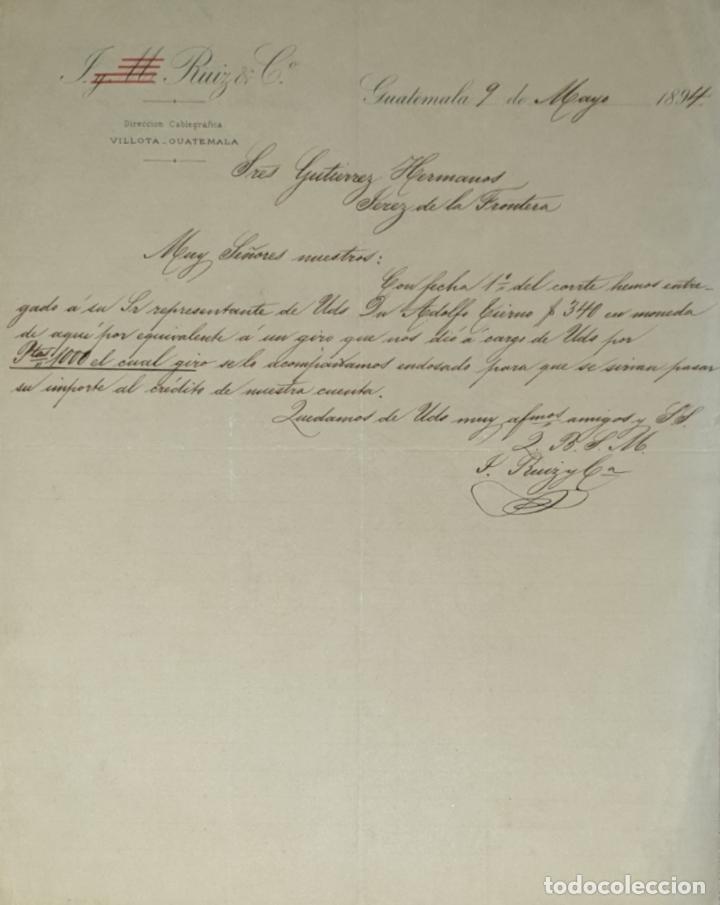 J. y M. Ruiz & Cº
Direccion Cablegráfica
VILLOTA - GUATEMALA
Guatemala 9 de Mayo 1894.
Sres Gutierrez Hermanos
Jerez de la Frontera
Muy Señores nuestros:
Con fecha 1º del corrte hemos entre-
gado á su Sr representante de Uds Dn Adolfo $ 340 en moneda
de aquí por equivalente á un giro que nos dió á cargo de Uds por
Ptas 1000 el cual giro se lo acompañamos endosado para que se sirvan pasar
su importe al crédito de nuestra cuenta.
Quedamos de Uds muy afmos amigos y S.S.
Q. B. S. M.
J. Ruiz y Ca
todocoleccion